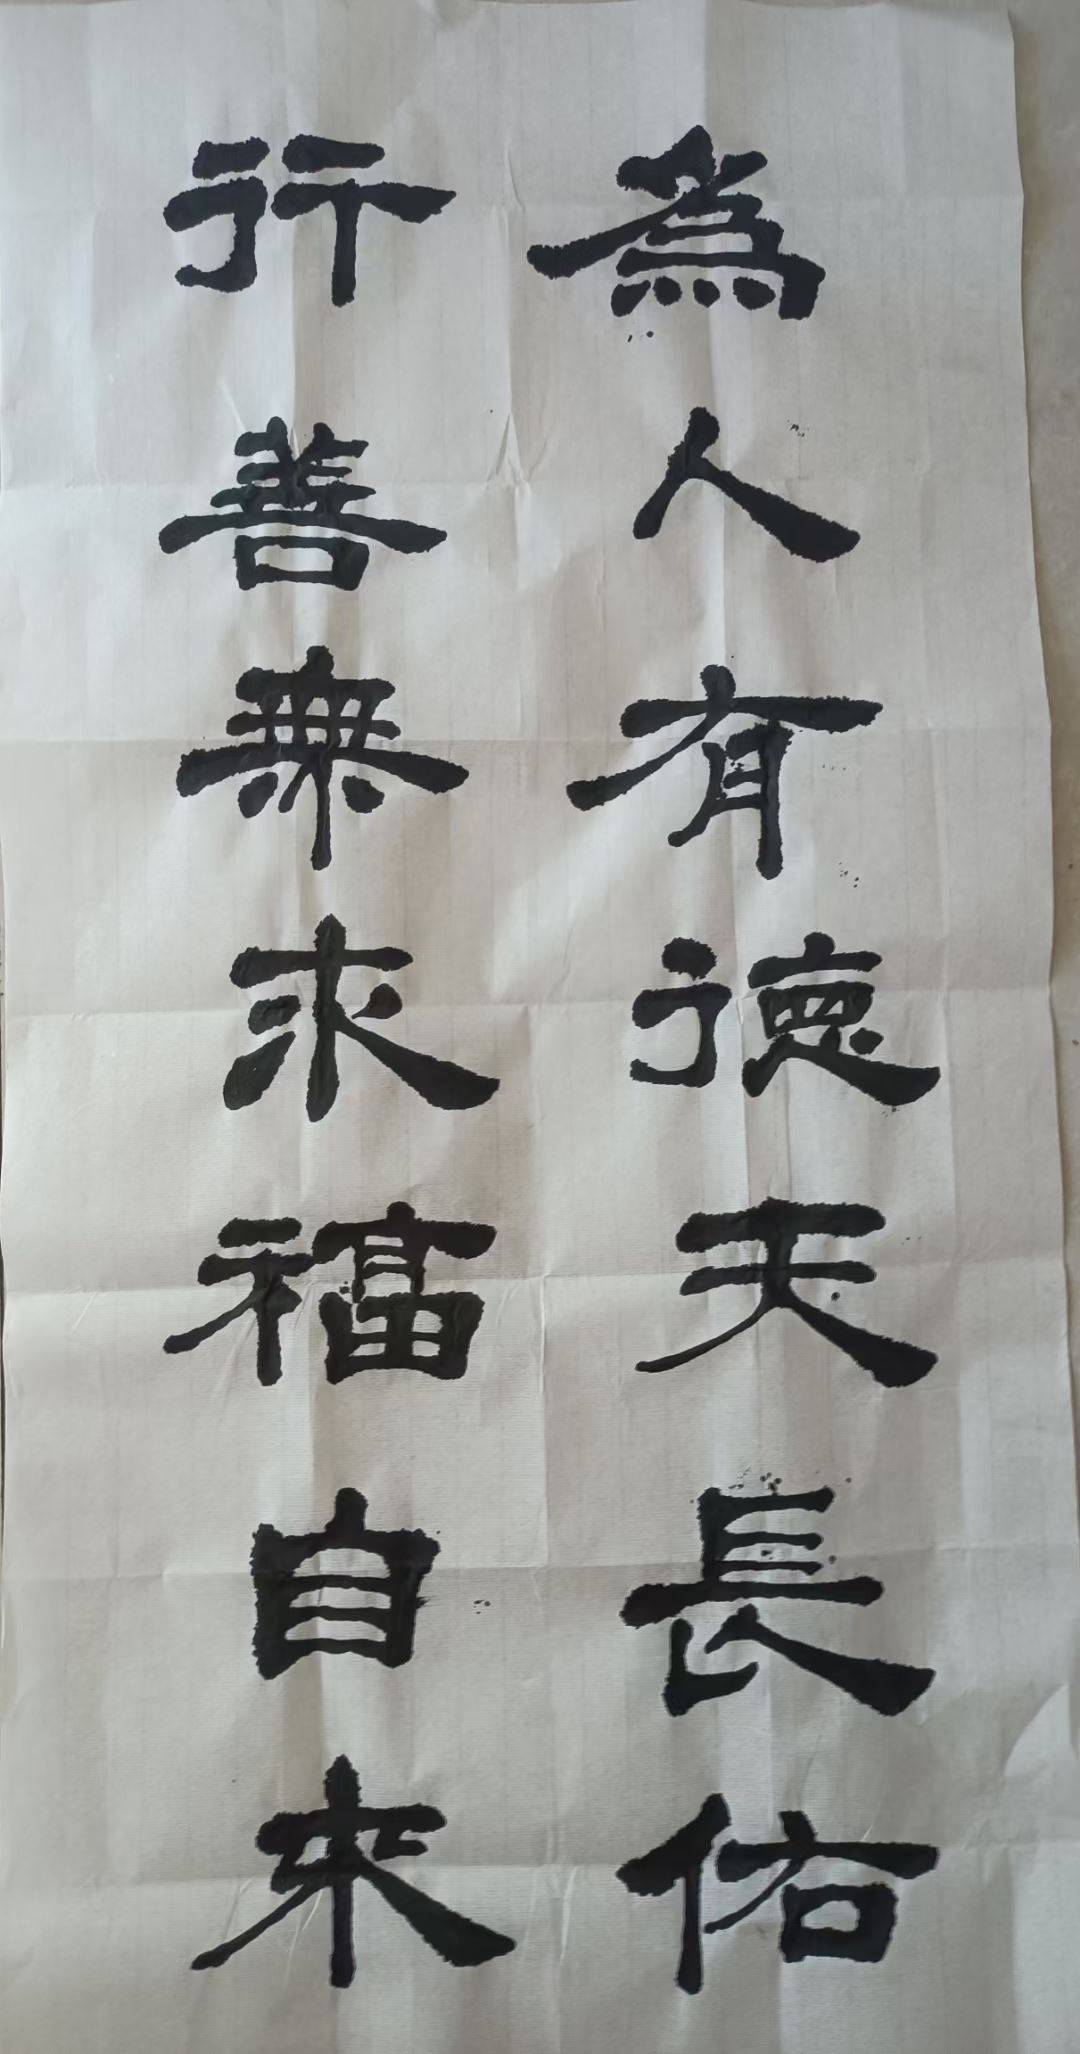 為人有德天長佑
行善無求福自來